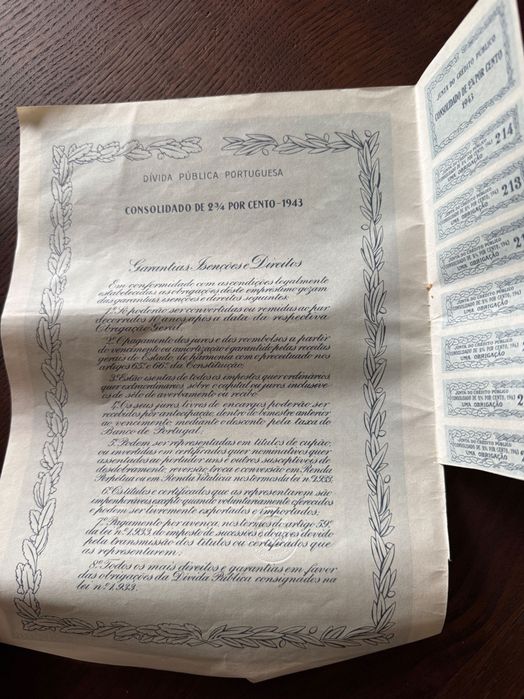 DÍVIDA PÚBLICA PORTUGUESA
CONSOLIDADO DE 2 3/4 POR CENTO-1943
Garantias Isenções e Direitos
Em conformidade com as condições legalmente
estabelecidas as obrigações deste empréstimo gozam
das garantias isenções e direitos seguintes:
1.º Só poderão ser convertidas ou remidas ao par
decorridos 10 anos após a data da respectiva
Obrigação Geral;
2.º O pagamento dos juros e dos reembolsos a partir
do vencimento ou amortização é garantido pelas receitas
gerais do Estado de harmonia com o preceituado nos
artigos 65.º e 66.º da Constituição;
3.º Estão isentas de todos os impostos quer ordinários
quer extraordinários sobre o capital ou juros inclusivé
os de sêlo de averbamento ou recibo
4.º Os seus juros livres de encargos poderão ser
recebidos por antecipação, dentro do bimestre anterior
ao vencimento mediante o desconto pela taxa do
Banco de Portugal;
5.º Podem ser representadas em títulos de cupão
ou convertidas em certificados quer nominativos quer
assentados ao portador uns e outros susceptíveis de
desdobramento reversão troca e conversão em Renda
Perpétua ou em Renda Vitalícia nos termos da lei n.º 1.933;
6.º Os títulos e certificados que as representarem são
impenhoráveis excepto quando voluntàriamente oferecidos
e podem ser livremente exportados e importados;
7.º Pagamento por avença, nos termos do artigo 59.º
da lei n.º 1.933, do imposto de sucessões e doações devido
pela transmissão dos títulos ou certificados que
as representarem;
8.º Todos os mais direitos e garantias em favor
das obrigações da Dívida Pública consignados na
lei n.º 1.933.
JUNTA DO CRÉDITO PÚBLICO
CONSOLIDADO DE 2 3/4 POR CENTO
1943
214
JUNTA DO CRÉDITO PÚBLICO
CONSOLIDADO DE 2 3/4 POR CENTO, 1943
UMA OBRIGAÇÃO
213
JUNTA DO CRÉDITO PÚBLICO
CONSOLIDADO DE 2 3/4 POR CENTO, 1943
UMA OBRIGAÇÃO
JUNTA DO CRÉDITO PÚBLICO
CONSOLIDADO DE 2 3/4 POR CENTO, 1943
UMA OBRIGAÇÃO
JUNTA DO CRÉDITO PÚBLICO
CONSOLIDADO DE 2 3/4 POR CENTO, 1943
UMA OBRIGAÇÃO
JUNTA DO CRÉDITO PÚBLICO
CONSOLIDADO DE 2 3/4 POR CENTO, 1943
UMA OBRIGAÇÃO
JUNTA DO CRÉDITO PÚBLICO
CONSOLIDADO DE 2 3/4 POR CENTO, 1943
UMA OBRIGAÇÃO
JUNTA DO CRÉDITO PÚBLICO
CONSOLIDADO DE 2 3/4 POR CENTO, 1943
UMA OBRIGAÇÃO